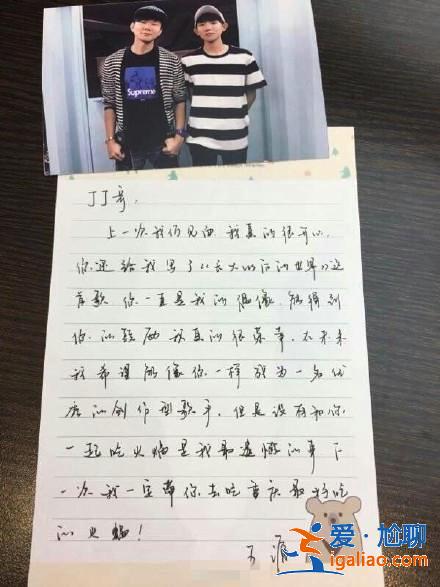 Supreme
JJ哥,
上一次我们见面我真的很开心,
你还给我写了《长大以后的世界》这
首歌,你一直是我的偶像,能得到
你的鼓励我真的很荣幸,在未来
我希望能像你一样成为一名优
质的创作型歌手,但是没有和你
一起吃火锅是我最遗憾的事,下
一次我一定带你去吃重庆最好吃
的火锅!
王源
爱·尬聊
igaliao.com